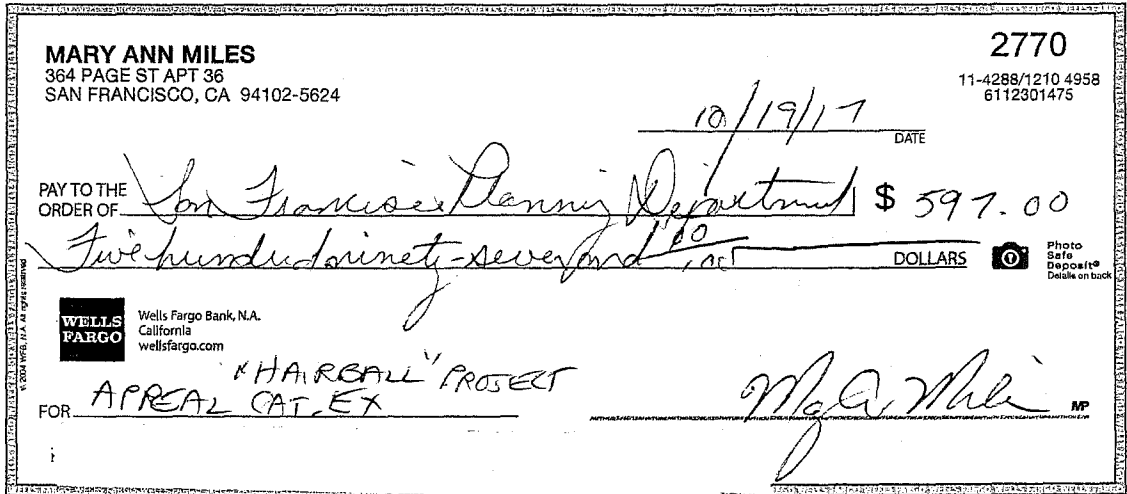 MARY ANN MILES
364 PAGE ST APT 36
SAN FRANCISCO, CA 94102-5624
2770
11-4288/1210 4958
6112301475
10/19/17
DATE
PAY TO THE ORDER OF San Francisco Planning Department $ 597.00
Five hundred ninety-seven and 00/100 DOLLARS
Photo Safe Deposit®
Details on back
© 2004 WFB, N.A. All rights reserved
WELLS FARGO
Wells Fargo Bank, N.A.
California
wellsfargo.com
"HAIRBALL" PROJECT
FOR APPEAL CAT. EX
M A Miles
MP